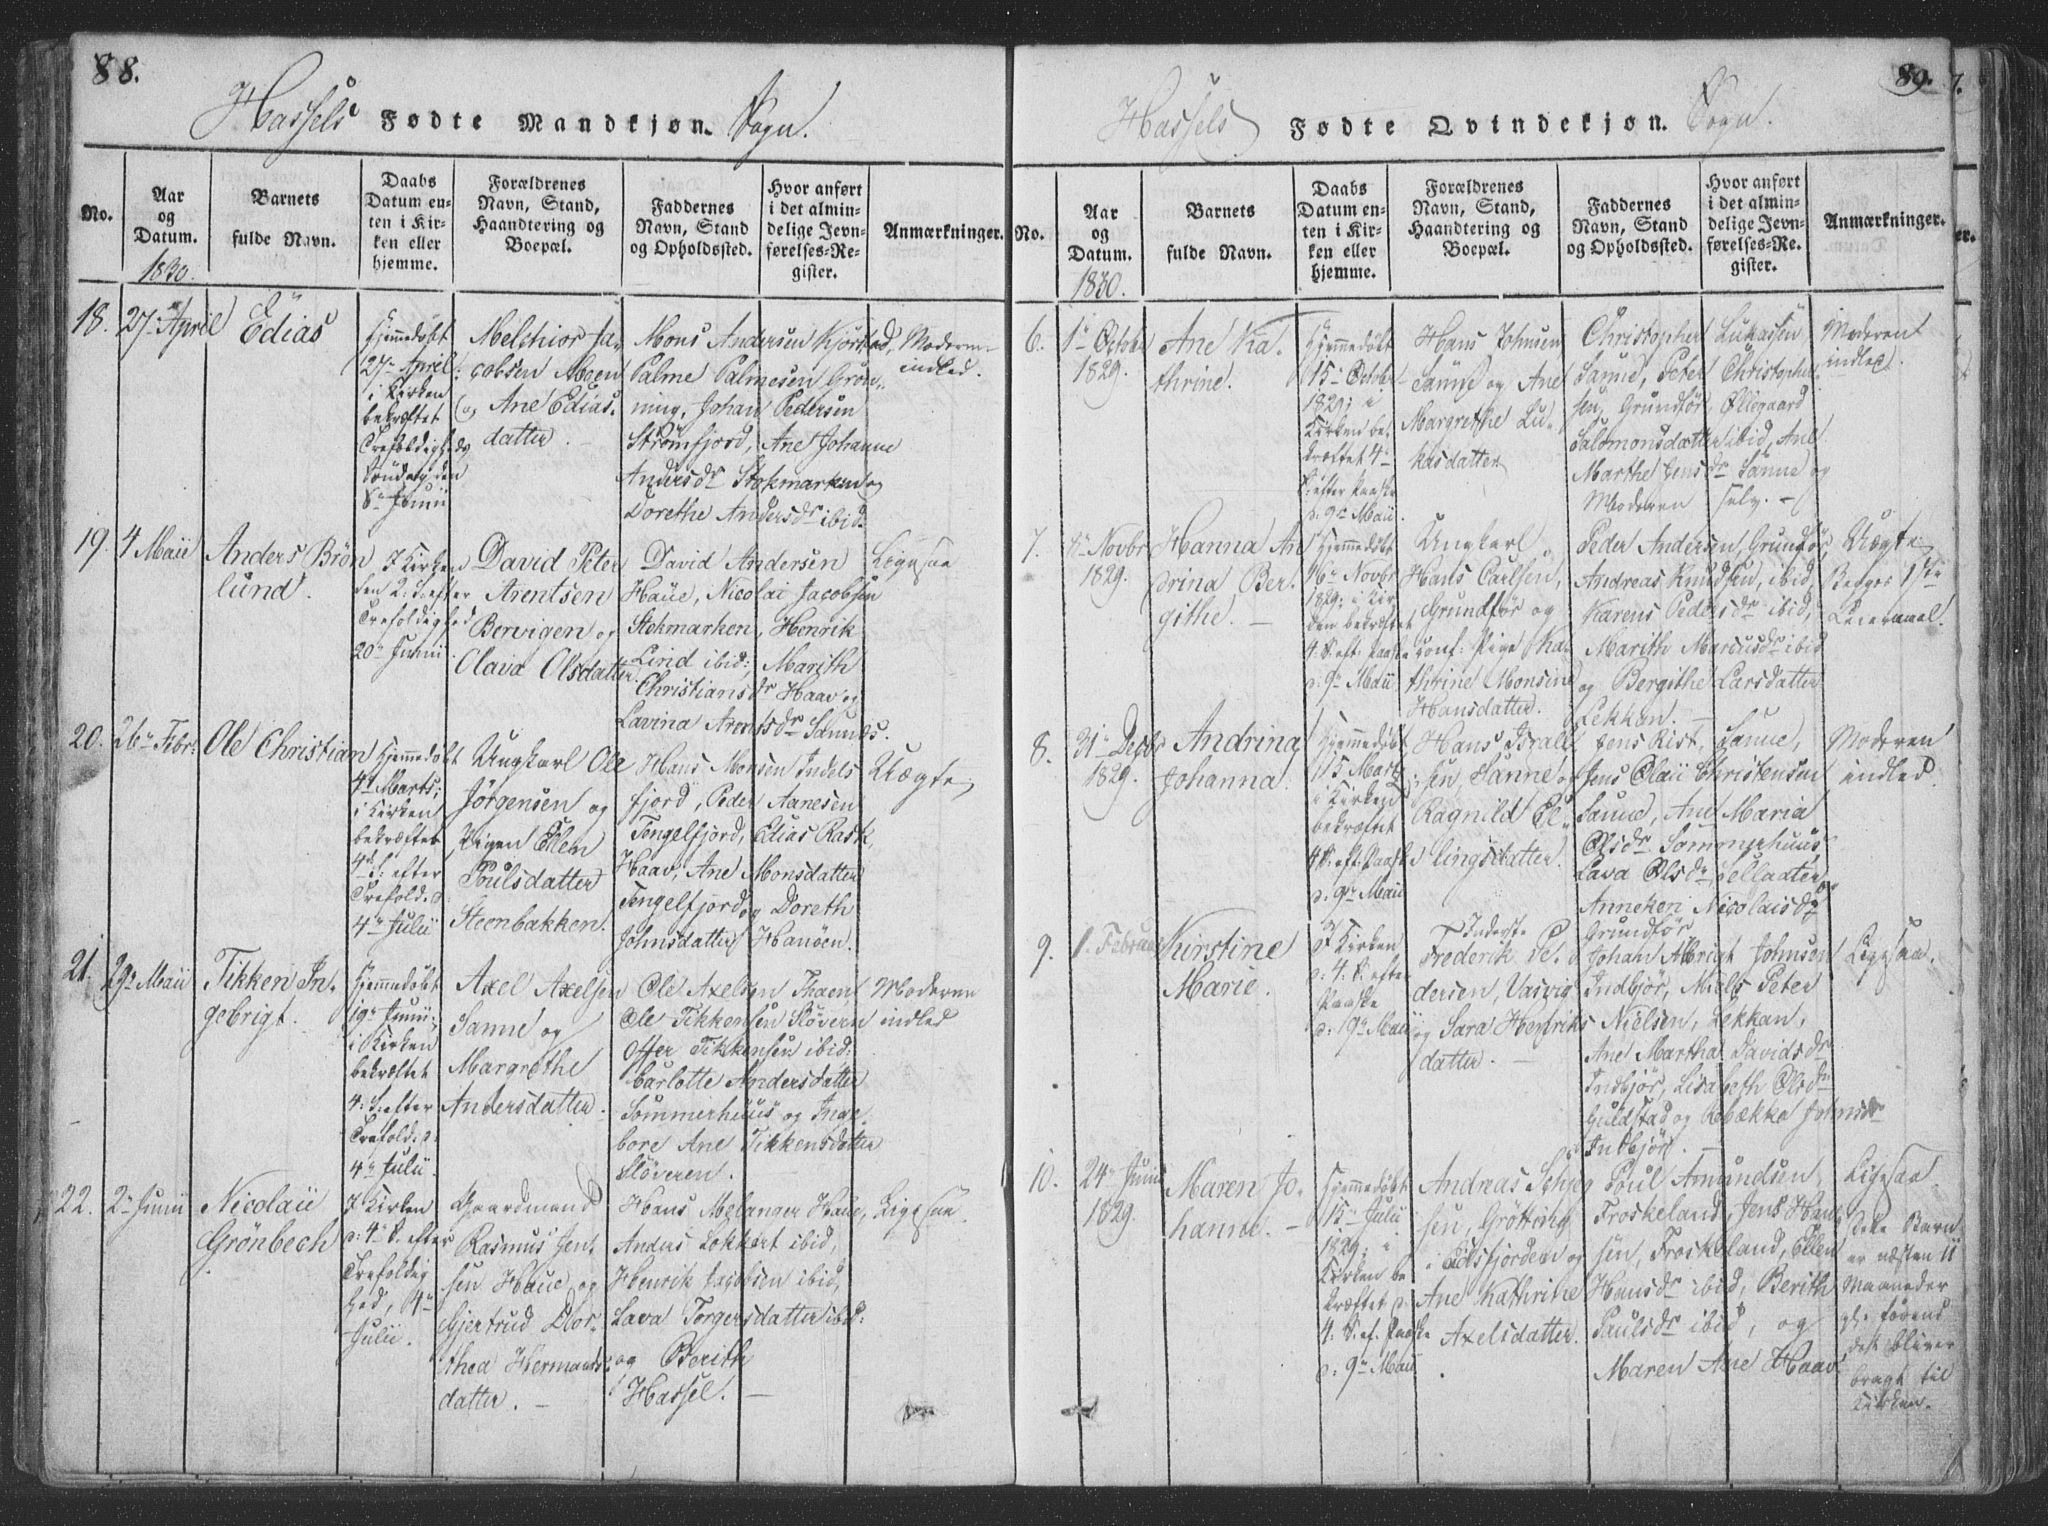 88.
Hassels Fødte Mandkjøn. Sogn.
No.
Aar
og
Datum.
Barnets
fulde Navn.
Daabs
Datum en-
ten i Kir-
ken eller
hjemme.
Forældrenes
Navn, Stand,
Haandtering og
Boepæl.
Faddernes
Navn, Stand
og Opholdssted.
Hvor anført
i det almin-
delige Jevn-
førelses-Re-
gister.
Anmærkninger.
1830.
18.
27 April
Edias
Hjemmedøbt
27 April
i Kirken
bekræftet
Trefoldigheds
Søndag den
6 Junii
Melchior Ja-
cobsen Moen
og Ane Edias-
datter.
Mons Andersen Kjørstad,
Palme Palmesen Grøn-
ning, Johan Pedersen
Strømfjord, Ane Johanne
Andersdr Stokmarken og
Dorethe Andersdr ibid.
Moderen
indled.
19.
4 Maii
Anders Brön
lund.
I Kirken
den 2. S. efter
Trefoldighed
20 Junii
David Peter
Arentsen
Bervigen og
Olava Olsdatter.
David Andersen
Haüe, Nicolai Jacobsen
Stokmarken, Henrik
Lind ibid; Marith
Christiansdr Haav og
Lavina Arentsdr Sannes.
Ligesaa
20.
26 Febr.
Ole Christian
Hjemmedøbt
4 Marts;
i Kirken
bekræftet
4 S. efter
Trefold. d.
4 Julii
Ungkarl Ole
Jörgensen og
Pigen Ellen
Poulsdatter
Steenbakken.
Hans Monsen Indels
fjord, Peder Aanesen
Tengelfjord, Edias Rask,
Haav, Ane Monsdatter
Tengelfjord og Doreth
Johnsdatter Hanöen.
Uægte
21.
29 Maii
Tikken In-
gebrigt.
Hjemmedøbt
19 Junii;
i Kirken
bekræftet
4. S. efter
Trefold. d.
4 Julii.
Axel Axelsen
Sanne og
Margrethe
Andersdatter.
Ole Axelsen
Ole Tikkensen Slöveren
Offer Tikkensen ibid:
Carlotte Andersdatter
Sommerhuus og Inge-
bore Ane Tikkensdatter
Slöveren.
Moderen
indled
22.
2 Junii
Nicolaii
Grönbech
I Kirken
d. 4 S. efter
Trefoldig
hed, 4
Julii.
Gaardmand
Rasmus Jent-
sen Haue, og
Gjertrud Dor-
thea Hermands-
datter.
Hans Melanger Haue,
Anders Lokkert ibid,
Henrik Jacobsen ibid,
Lava Torgersdatter ibid:
og Berith
Hassel.
Ligesaa
89.
Hassels Fødte Qvindekjøn. Sogn.
No.
Aar
og
Datum.
Barnets
fulde Navn.
Daabs
Datum en-
ten i Kir-
ken eller
hjemme.
Forældrenes
Navn, Stand,
Haandtering og
Boepæl.
Faddernes
Navn, Stand
og Opholdssted.
Hvor anført
i det almin-
delige Jevn-
førelses-Re-
gister.
Anmærkninger.
1830.
6.
1 October
1829.
Ane Ka-
thrine.
Hjemmedøbt
15 October
1829; i
Kirken be-
kræftet 4
S. efter Paaske
d. 9 Maii.
Hans Johnsen
Sanne og Ane
Margrethe Lu-
kasdatter
Christopher Lukassen
Sanne, Peter Christopher
sen Grundför, Ollegaard
Salomonsdatter ibid, Ane
Marthe Jensdr Sanne og
Moderen selv.
Moderen
indled.
7.
Novbr
1829.
Hanna An
drina Ber-
githe.
Hjemmedøbt
16 Novbr
1829; i Kir
ken bekræftet
4. S. eft: Paaske
d. 9 Maii
Ungkarl
Hans Carlsen,
Grundför og
conf: Pige Ka-
thrine Monsine
Hansdatter.
Peder Andersen, Grundför,
Andreas Knudsen, ibid,
Karens Pedersdr ibid,
Marith Marcusdr ibid
og Bergithe Larsdatter
Lekkan.
Uægte
Begges 1ste
Leiermaal.
8.
31 Decbr
1829.
Andrina
Johanna
Hjemmedøbt
15 Marts
i Kirken
bekræftet
4 S. eft. Paaske
d. 9 Maii
Hans Israel-
sen, Sanne og
Ragnild El-
lingsdatter.
Jens Rist, Sanne,
Jens Olaii Christensen
Sanne, Ane Maria
Olsdr Sommerhuus
Lava Olsdr
Anneken Nicolaisdr
Grundför
Moderen
indled.
9.
1. Februar
Kirstine
Marie.
I Kirken
d: 4. S. efter
Paaske
d: 9 Maii
Inderste
Frederik Pe-
dersen, Vasvig
og Sara Henriks
datter.
Johan Albrigt Johnsen
Indbjör, Niels Peter
Nielsen, Lekkan,
Ane Martha Davidsdr
Indbjör, Lisabeth Olsdr
Guldstad og Rebækka Johnsdr
Indbjör.
Ligesaa.
10.
24 Junii
1829.
Maren Jo-
hanna.
Hjemmedøbt
15 Julii
1829; i
Kirken be
kræftet d.
4. S. ef. Paaske
d. 9 Maii
Andreas
sen, Gröttning
i Eidsfjorden og
Ane Kathrine
Axelsdatter.
Poul Amundsen,
Froskeland, Jens Han-
sen, Froskeland, Ellen
Hansdr ibid, Berith
Paulsdr ibid, og
Maren Ane Haav.
Ligesaa
Dette Barn
er næsten 11
Maaneder
gl. førend
det bliver
bragt til
Kirken.